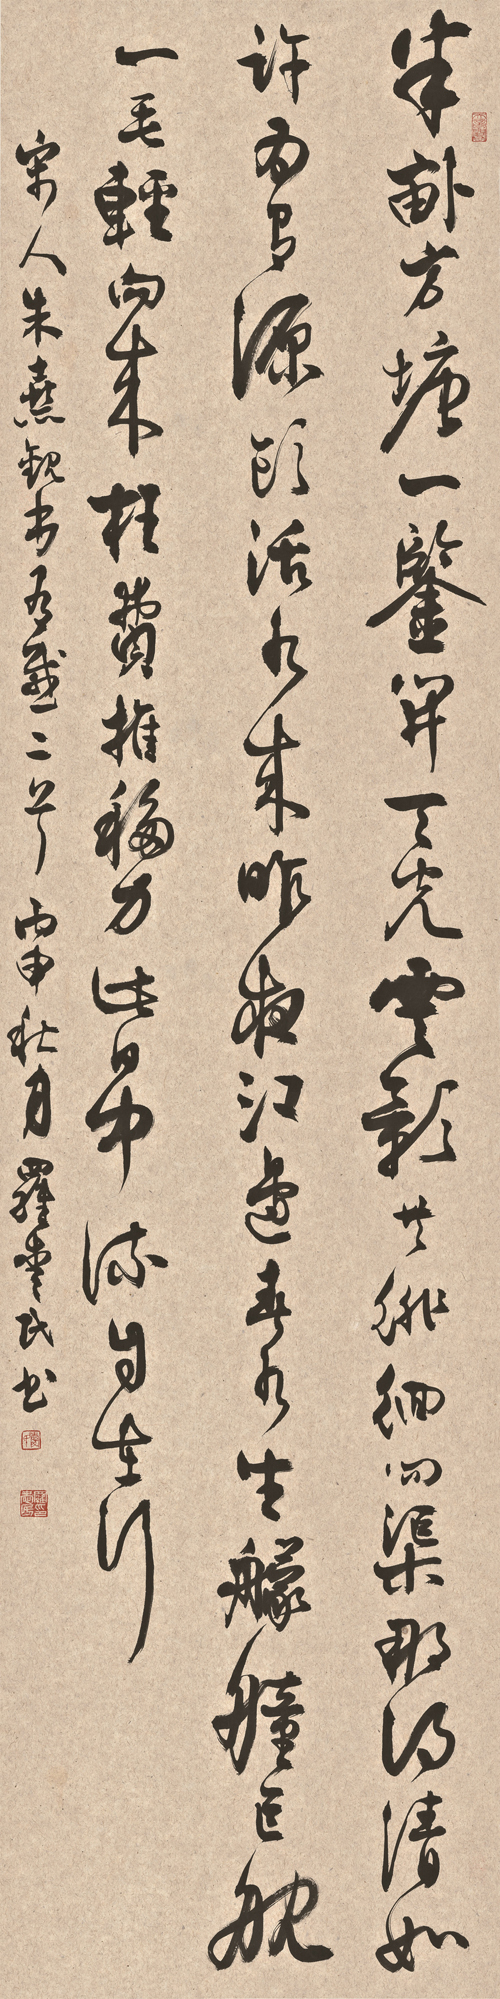 半畝方塘一鑒開天光雲影共徘徊問渠那得清如
許為有源頭活水來昨夜江邊春水生艨艟巨舰
一毛輕向來枉費推移力此日中流自在行
宋人朱熹觀書有感二首 丙申秋月 羅民书